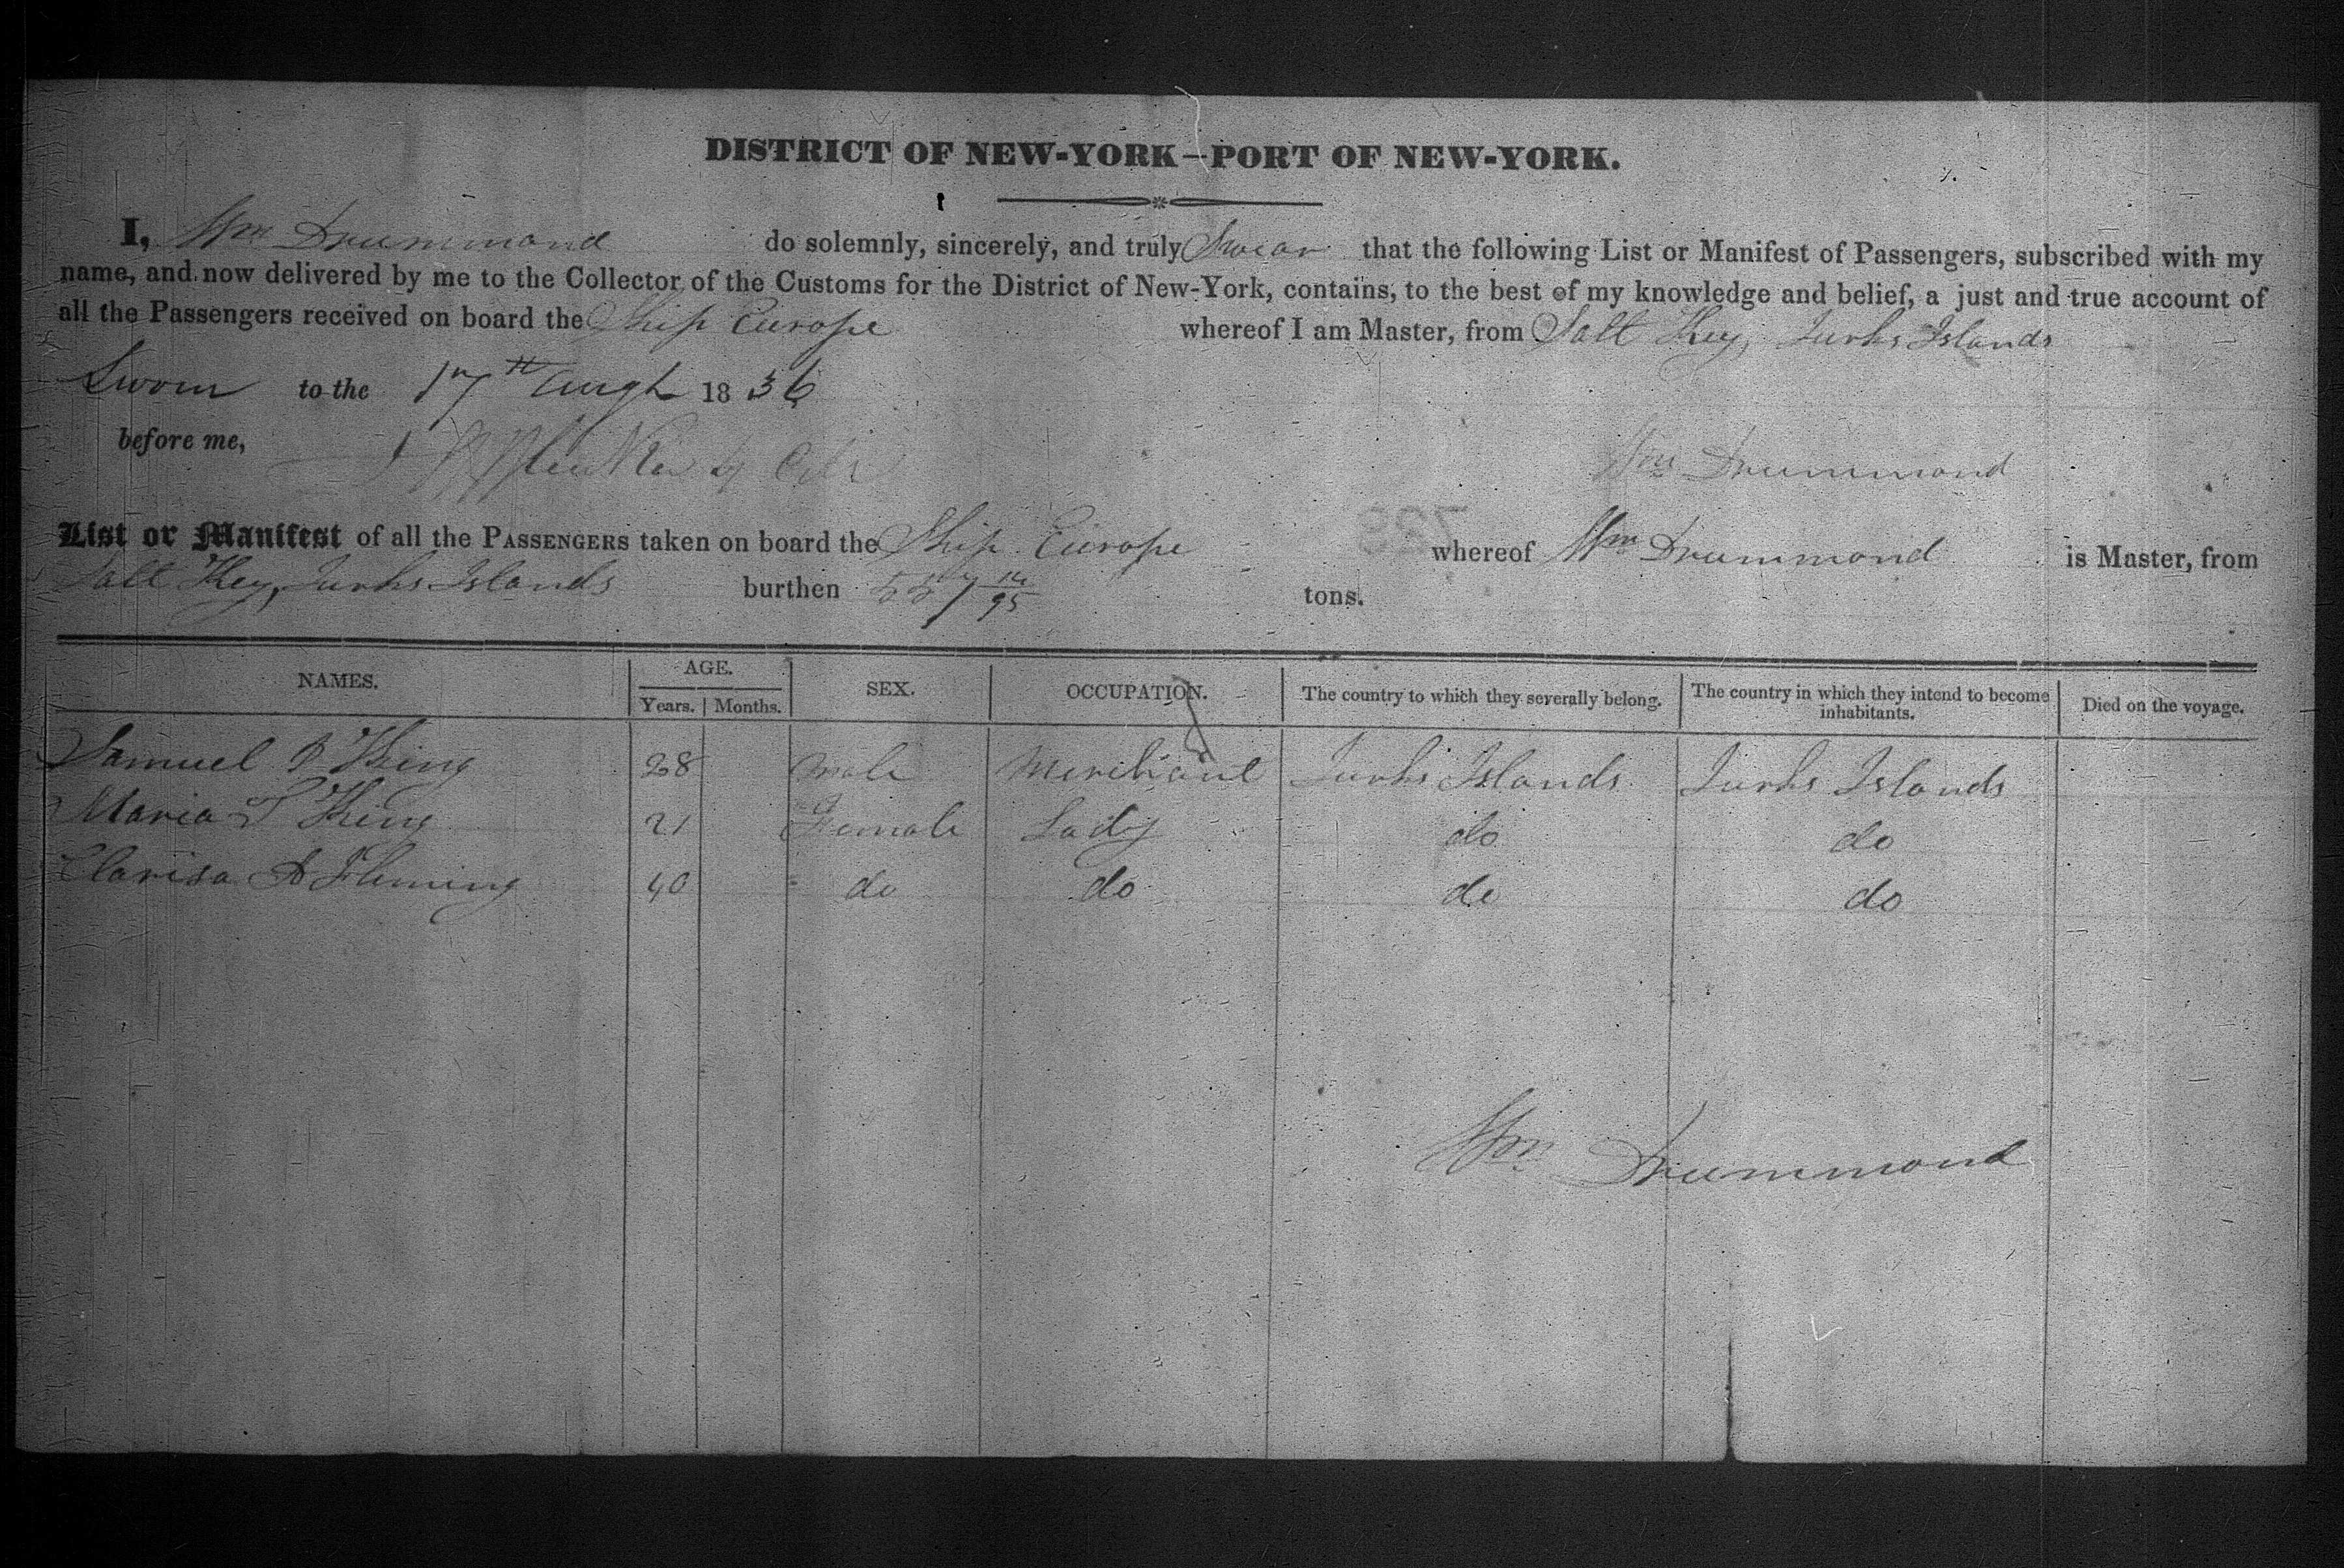 DISTRICT OF NEW-YORK—PORT OF NEW-YORK.
I, Wm Drummond do solemnly, sincerely, and truly Swear that the following List or Manifest of Passengers, subscribed with my
name, and now delivered by me to the Collector of the Customs for the District of New-York, contains, to the best of my knowledge and belief, a just and true account of
all the Passengers received on board the Ship Europe whereof I am Master, from Salt Key, Turks Islands
Sworn to the 17th Augt 1836
before me,
Wm Drummond
List or Manifest of all the PASSENGERS taken on board the Ship Europe whereof Wm Drummond is Master, from
Salt Key, Turks Islands burthen tons.
NAMES. AGE. Years. Months. SEX. OCCUPATION. The country to which they severally belong. The country in which they intend to become inhabitants. Died on the voyage.
Samuel King 28 Male Merchant Turks Islands Turks Islands
Maria S King 21 Female Lady do do
Clarisa A Fleming 40 do do do do
Wm Drummond